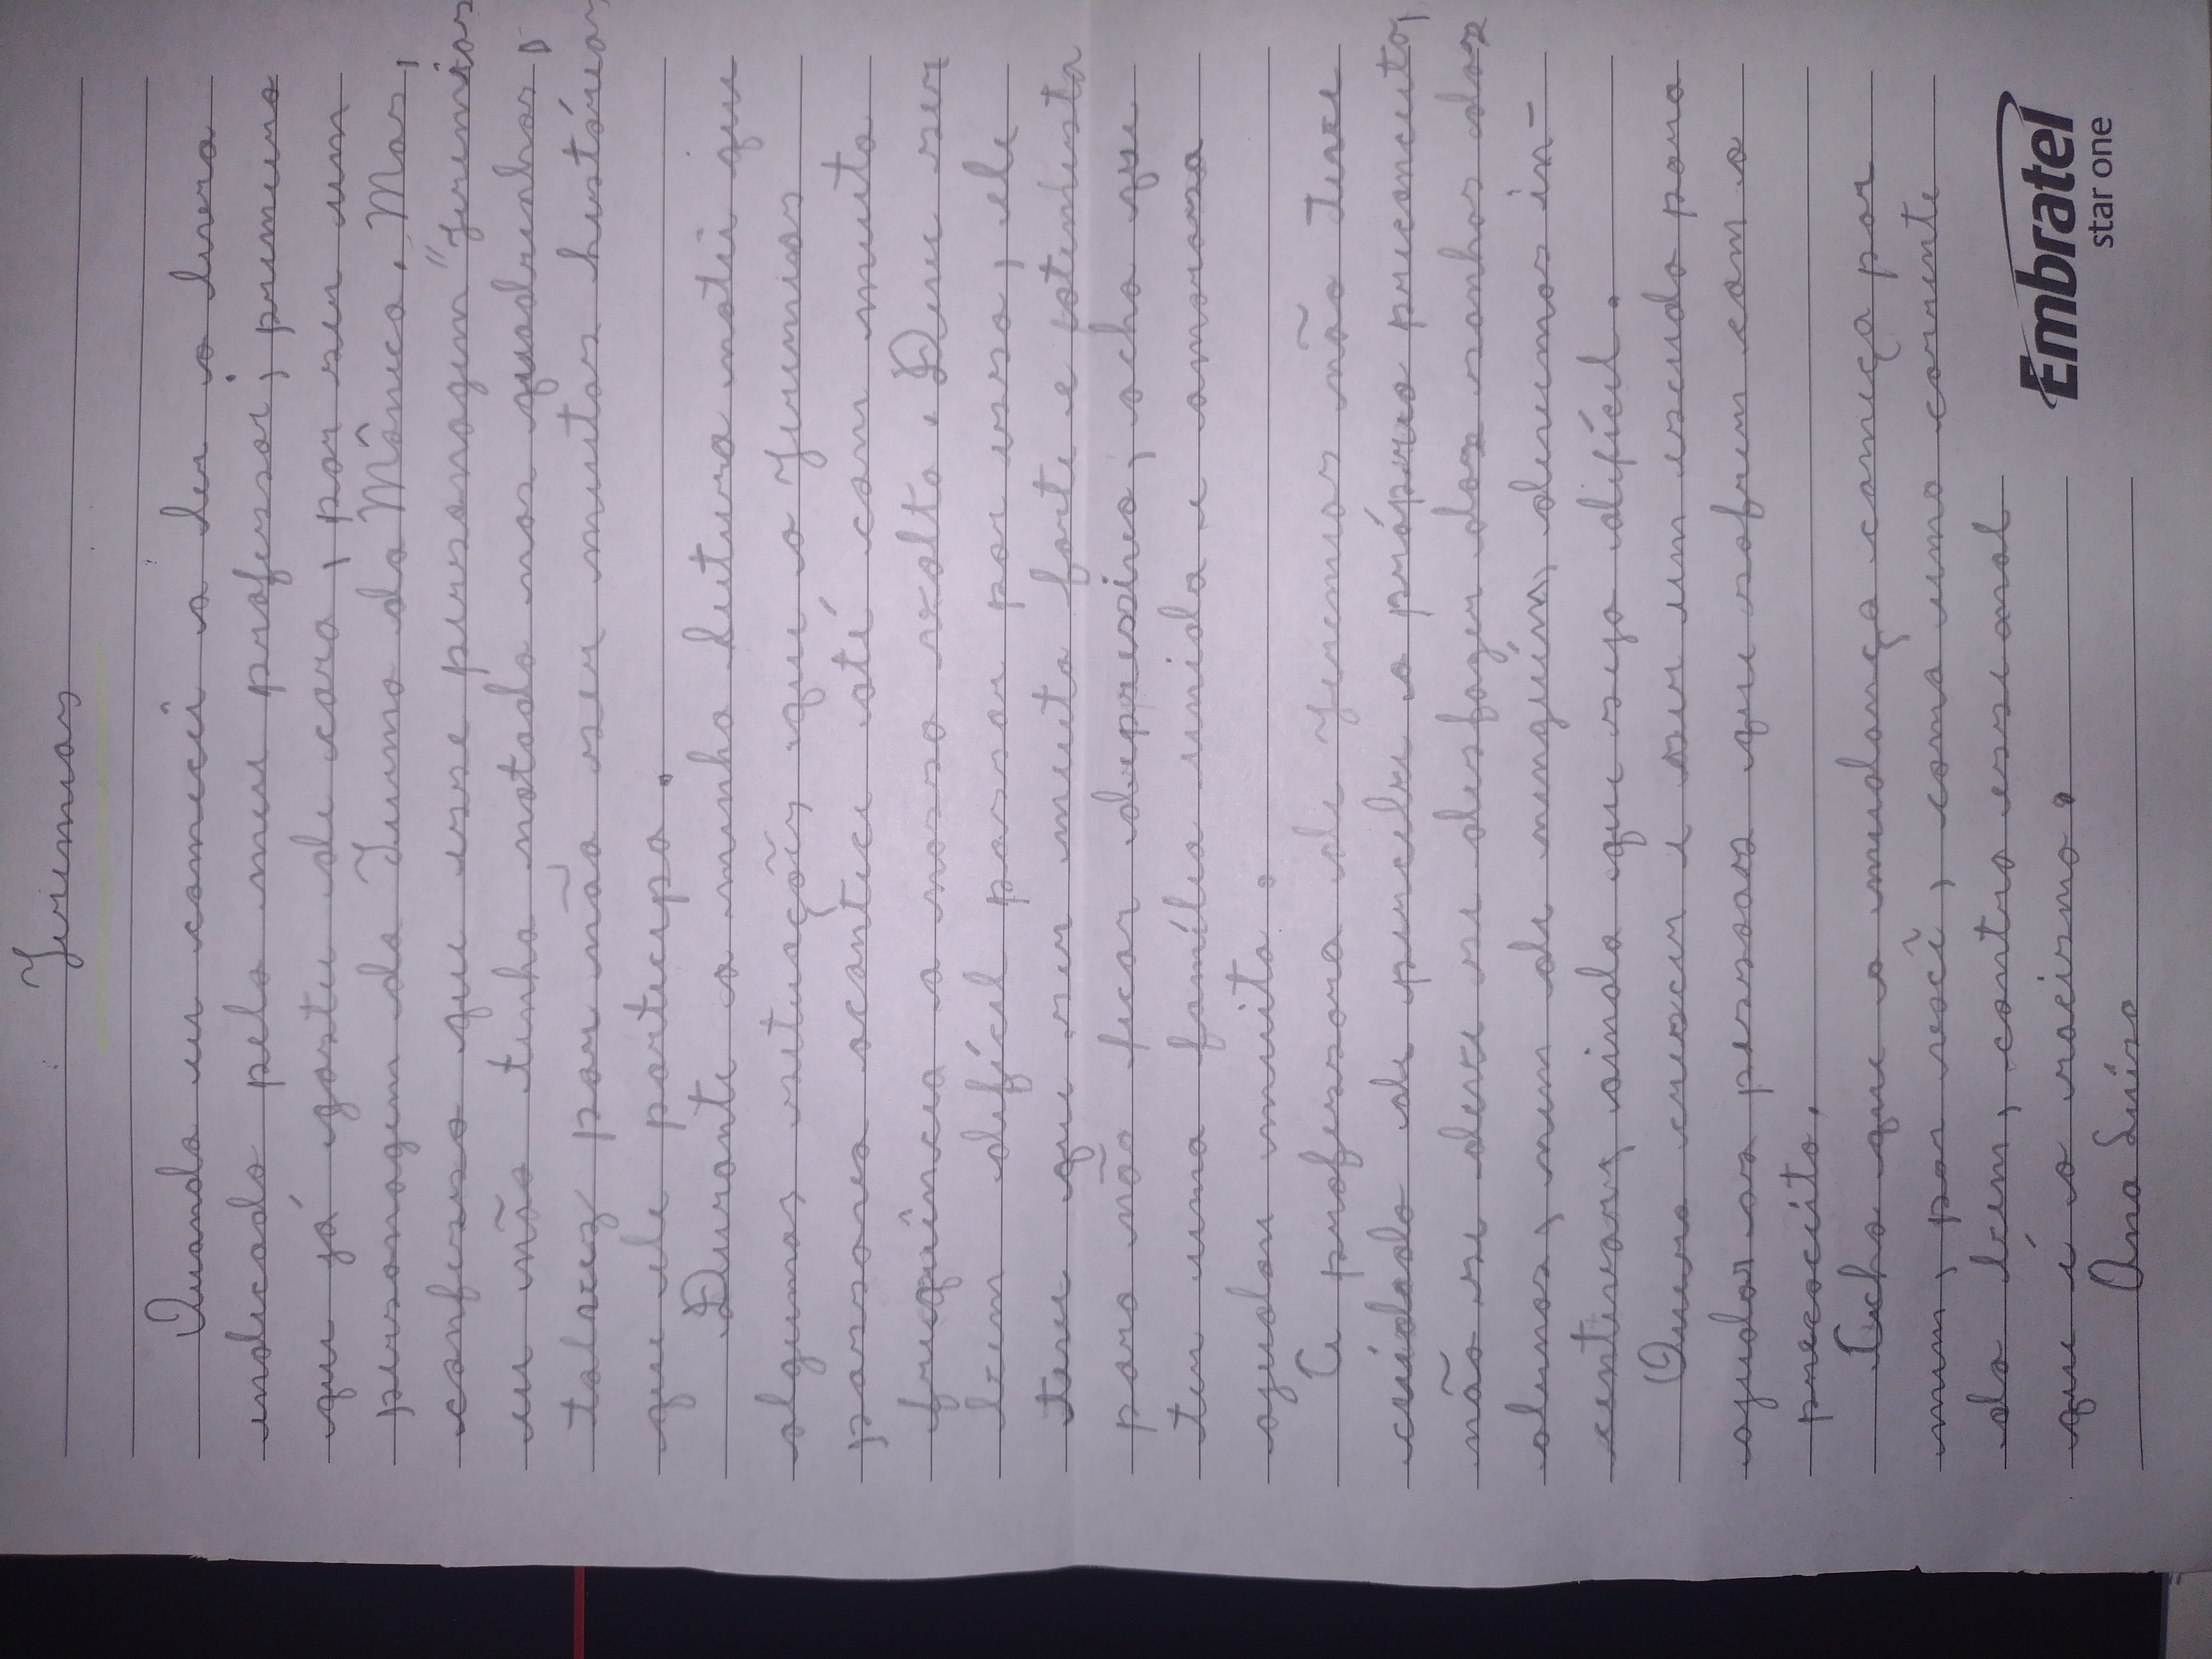 Jeremias
Quando eu comecei a ler o livro
indicado pelo meu professor, primeiro
que já gostei de cara, por ser um
personagem da Turma da Mônica. Mas,
confesso que esse personagem "Jeremias"
eu não tinha notado nos quadrinhos,
talvez por não ser muitas histórias
que ele participa.
Durante a minha leitura notei que
algumas situações que o Jeremias
passava acontece até com muita
frequência a nosso volta. Deve ser
bem difícil passar por isso, ele
teve que ser muito forte e
para não ficar depressivo, acho que
ter uma família unida e amorosa
ajudou muito.
A professora de Jeremias não teve
cuidado de perceber o próprio preconceito,
não se deve se desfazer dos sonhos dos
alunos, nem de ninguém, devemos in-
centivar, ainda que seja difícil.
Quero crescer e ser um escudo para
ajudar as pessoas que sofrem com o
precocito.
Acho que a mudança começa por
mim, por você, como uma corrente
do bem, contra esse mal
que é o racismo.
Ana Luísa
Embratel
star one